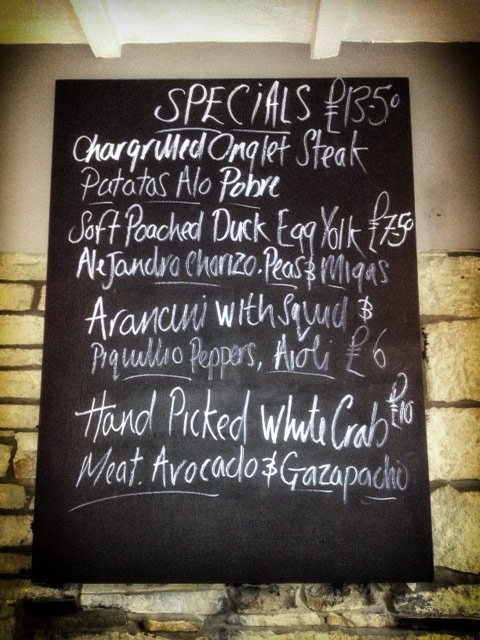 SPECIALS £13.50
Chargrilled Onglet Steak
Patatas Alo Pobre
Soft Poached Duck Egg Yolk £7.50
Alejandro Chorizo. Peas & Migas
Arancini with Squid &
Piquillio Peppers, Aioli £6
Hand Picked White Crab £10
Meat. Avocado & Gazapacho